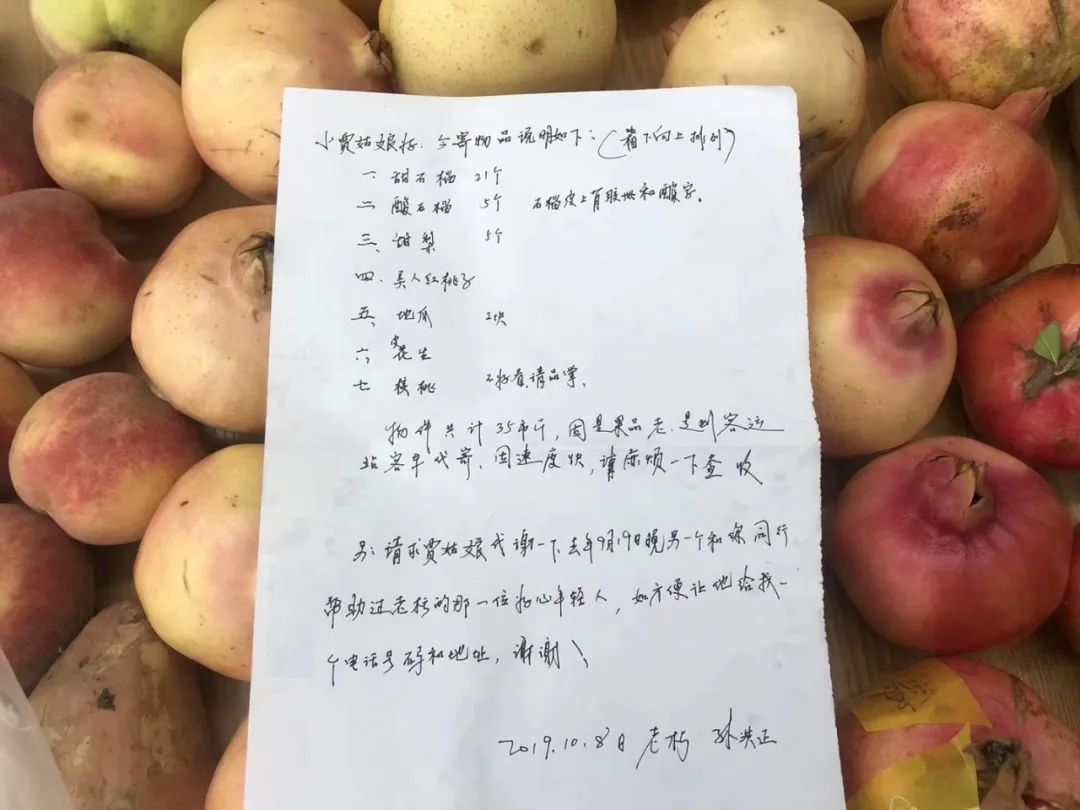 小贾姑娘好：今寄物品说明如下：（着下向上排列）
一 甜石榴 21个
二 酸石榴 5个 石榴皮上有胶带和酸字。
三、甜梨 5个
四、美人红桃子
五、地瓜 2块
六 花生
七 核桃 不好看请品尝。
物件共计35市斤，因是果品老 是到客运
站客车代寄、因速度快，请麻烦一下查收
另：请求贾姑娘代谢一下去年9月19日晚另一个和你同行
帮助过老朽的那一位好心年轻人，如方便让他给我一
个电话号码和地址，谢谢！
2019.10.8日 老朽 孙洪正